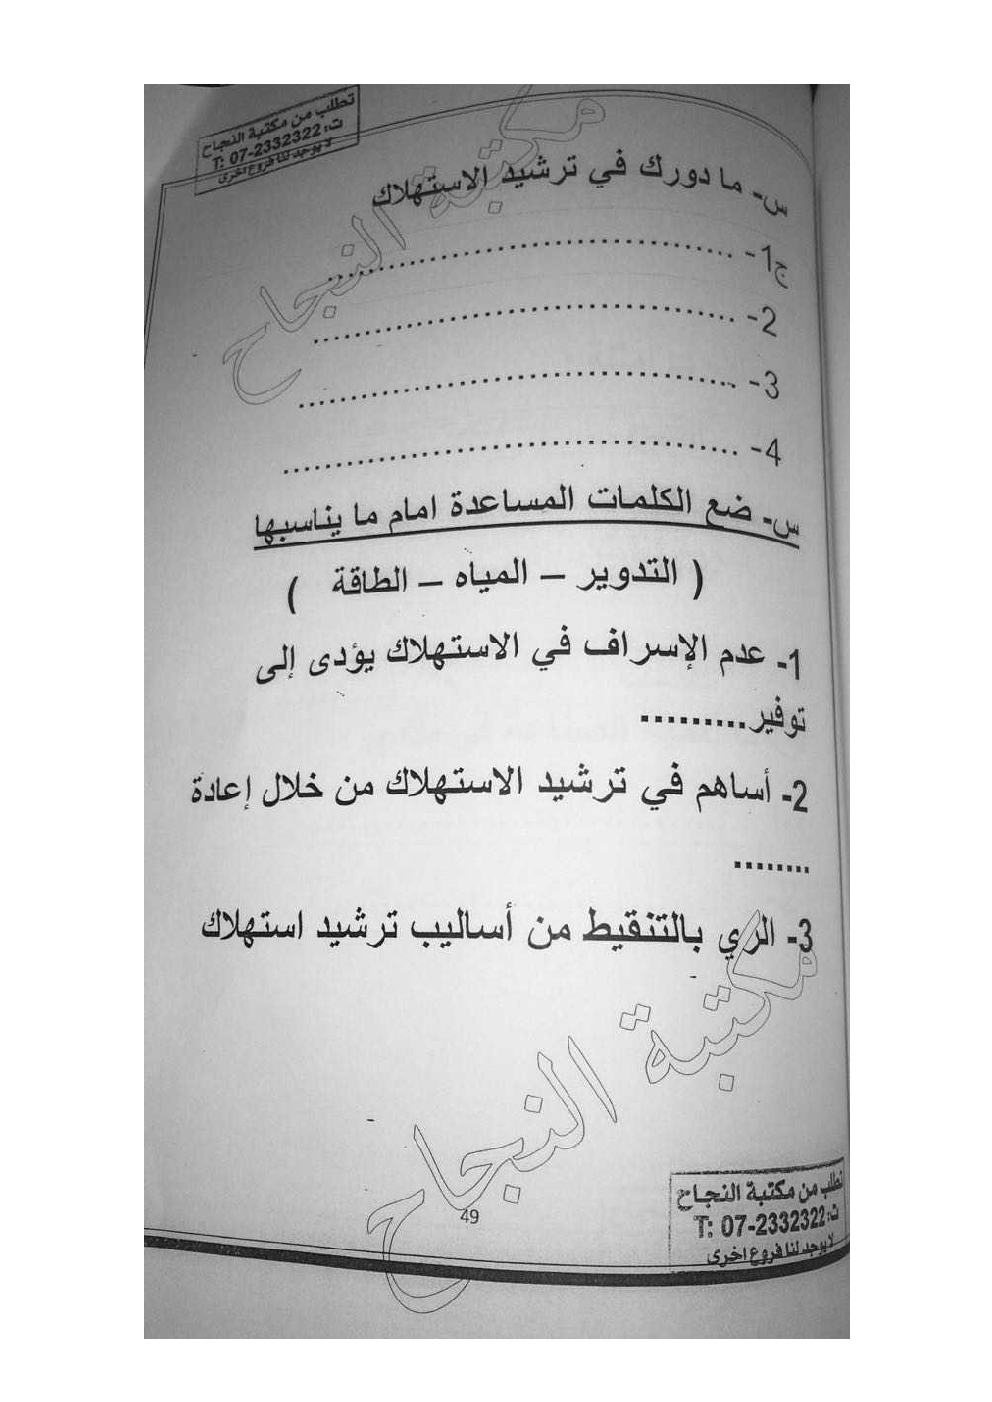 تطلب من مكتبة النجاح
ت: T: 07-2332322
لا يوجد لنا فروع اخرى
مكتبة النجاح
س- ما دورك في ترشيد الاستهلاك
ج1- ......................................
2- ......................................
3- ......................................
4- ......................................
س- ضع الكلمات المساعدة امام ما يناسبها
( التدوير – المياه – الطاقة )
1- عدم الإسراف في الاستهلاك يؤدى إلى
توفير.........
2- أساهم في ترشيد الاستهلاك من خلال إعادة
........
3- الري بالتنقيط من أساليب ترشيد استهلاك
مكتبة النجاح
تطلب من مكتبة النجاح
ت: T: 07-2332322
لا يوجد لنا فروع اخرى
49